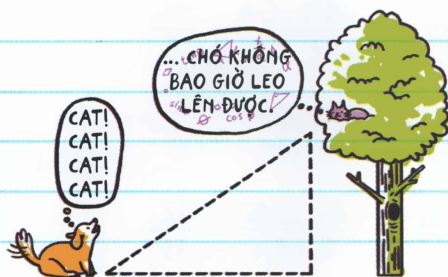 CAT!
CAT!
CAT!
CAT!
... CHÓ KHÔNG
BAO GIỜ LEO
LÊN ĐƯỢC.